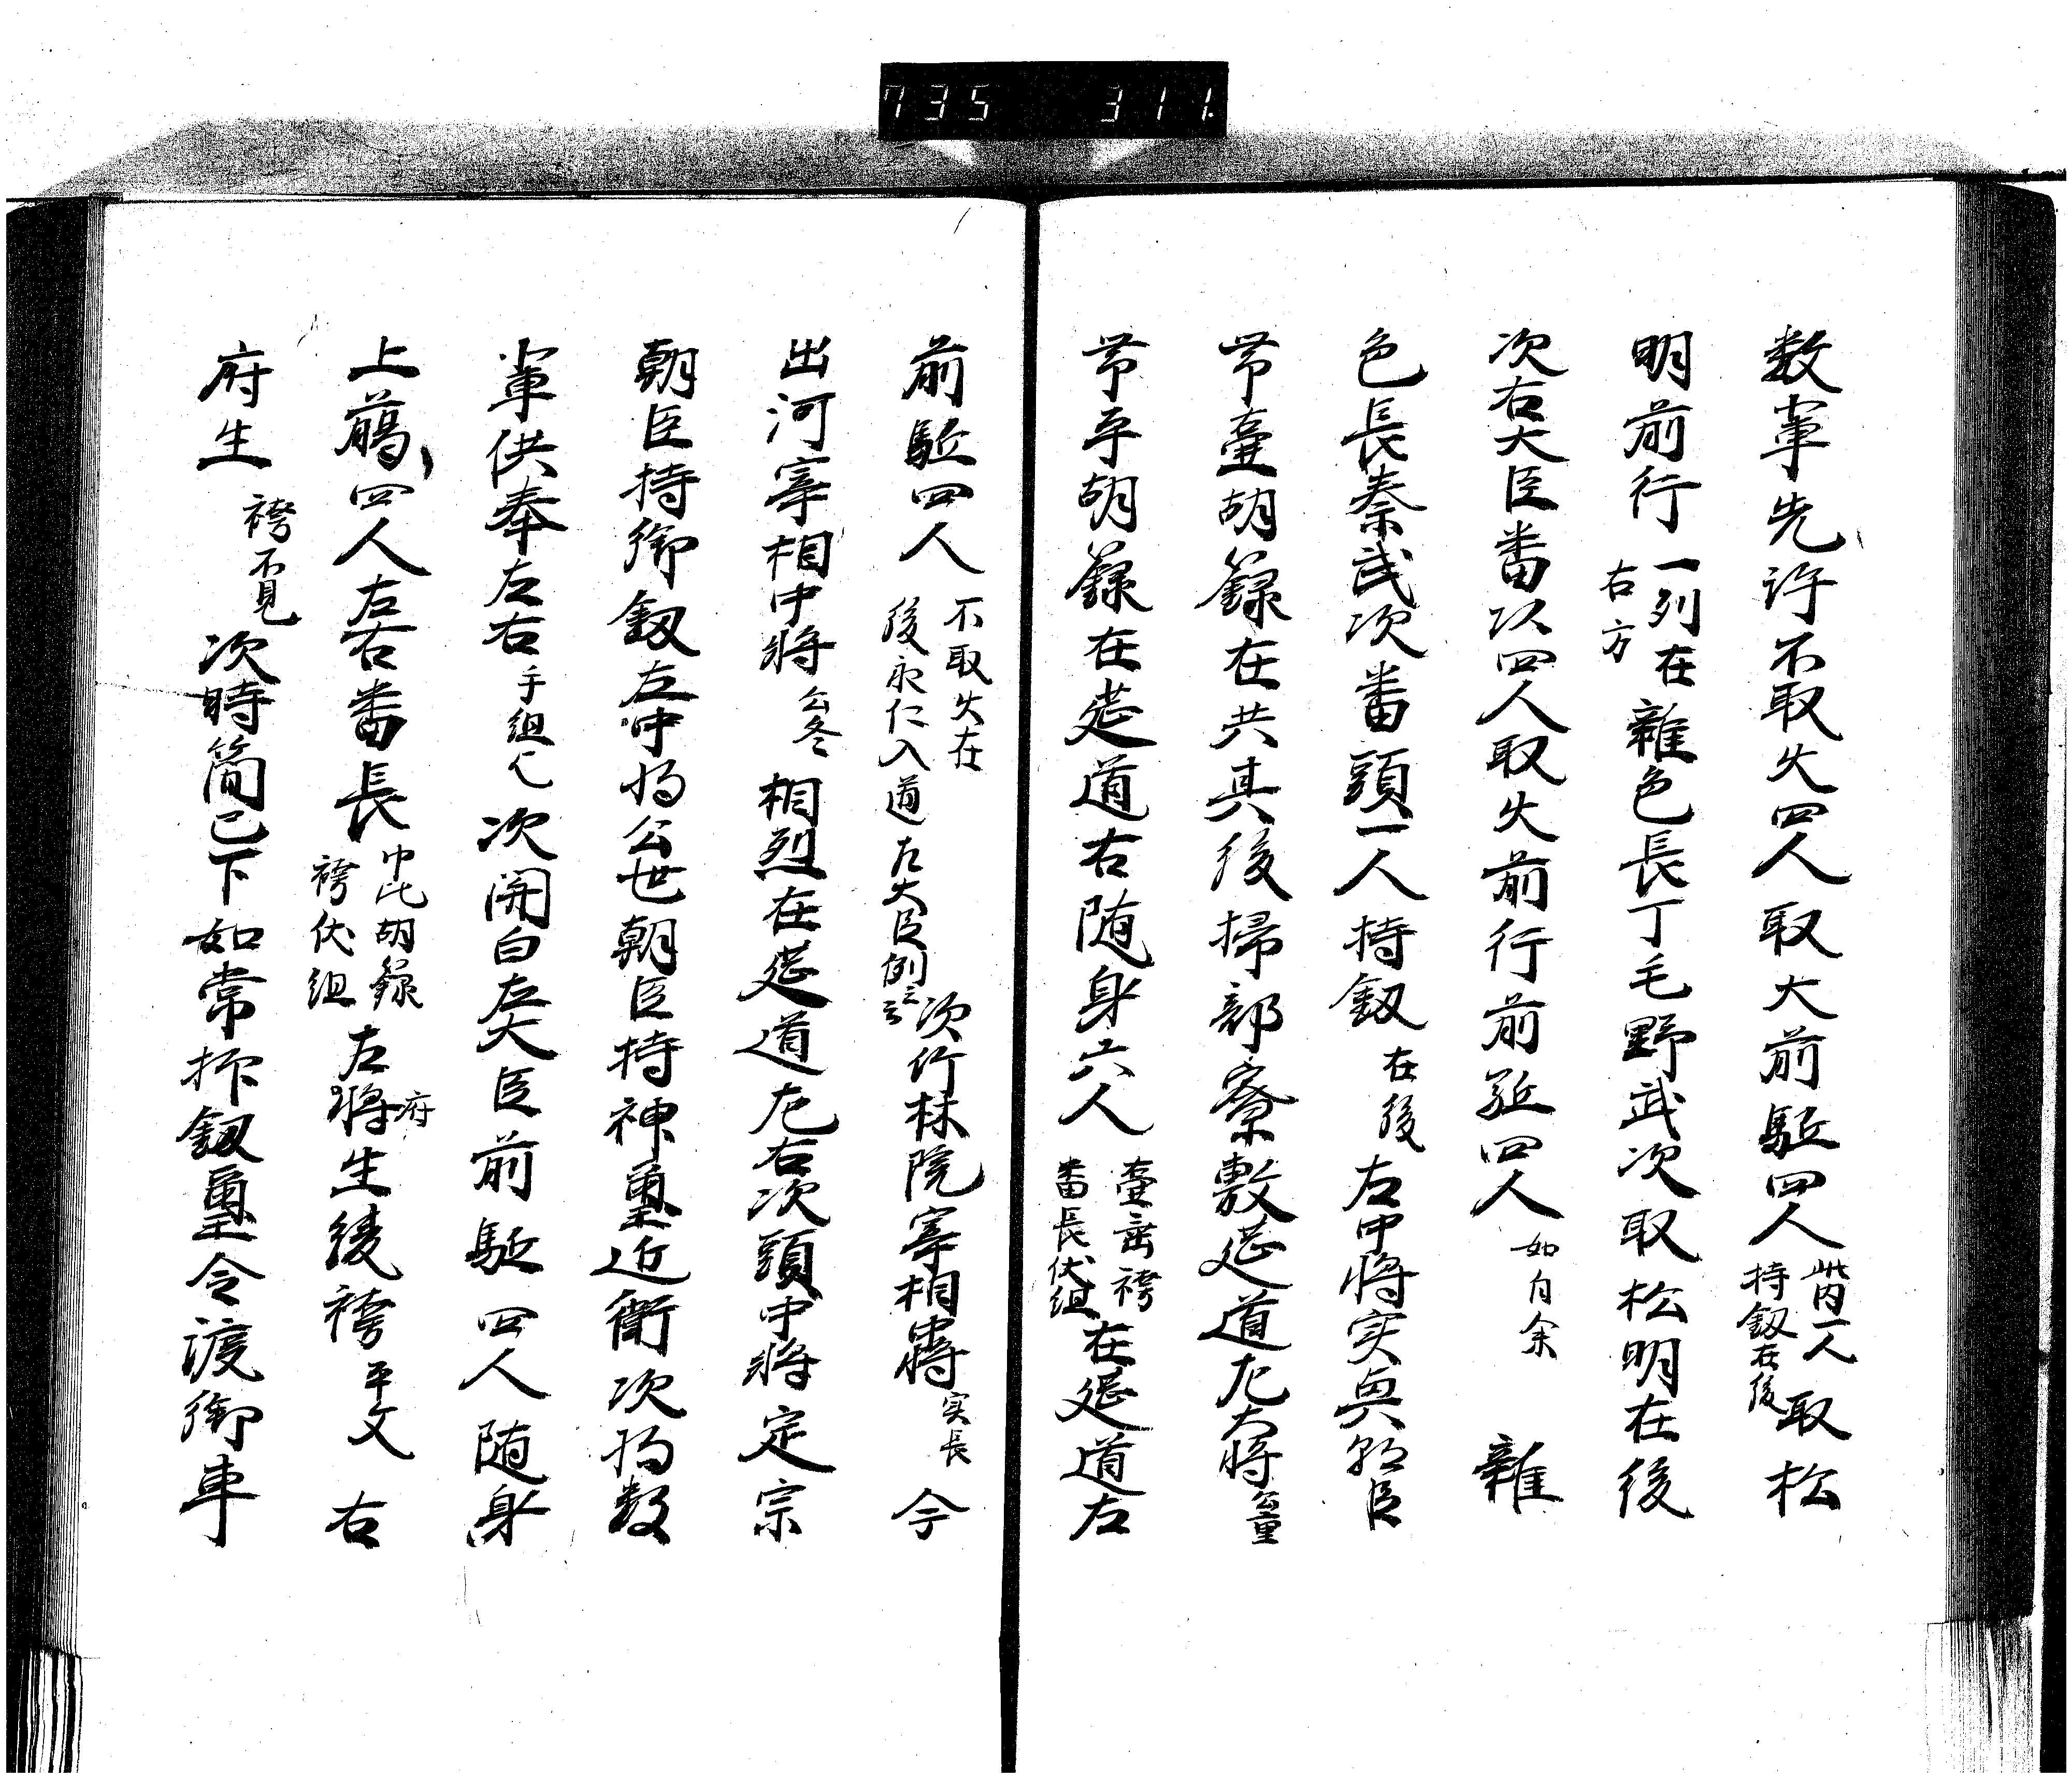 735 311
数軰先許不取火四人取大前駈四人此内一人持釼在後取松
明前行一列在右方雜色長丁毛野武次取松明在後
次右大臣番次四人取火前行前駈四人如自余雜
色長秦武次番頭一人持釼在後左中将実興朝臣
帯壷胡籙在共具後掃部寮敷莚道左大将公重
帯平胡籙在莚道右随身六人壷胡袴番長伏組在莚道左
前駈四人不取火在後永仁入道左大臣例云々次竹林院宰相中将実長今
出河宰相中将公冬相烈在莚道左右次頭中将定宗
朝臣持御釼左中将公世朝臣持神璽近衛次将数
軰供奉左右手組儿次関白左大臣前駈四人随身
上﨟四人左右番長巾比胡籙袴伏組左将府生綾袴平文右
府生袴不見次時簡已下如常抑釼璽令渡御車